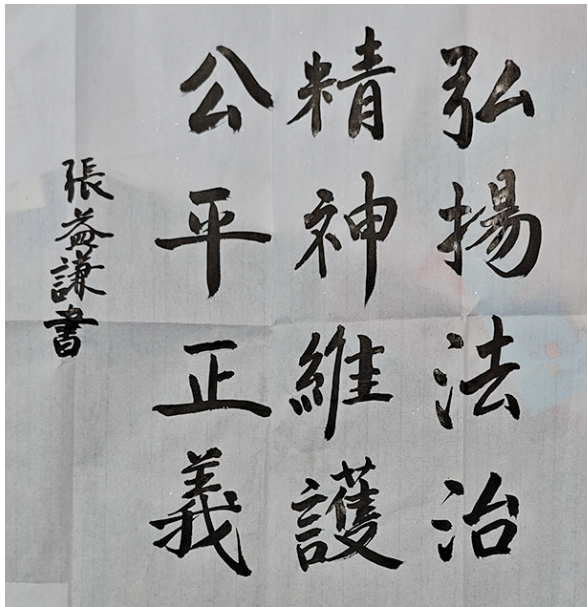 弘揚法治
精神維護
公平正義
張益謙書